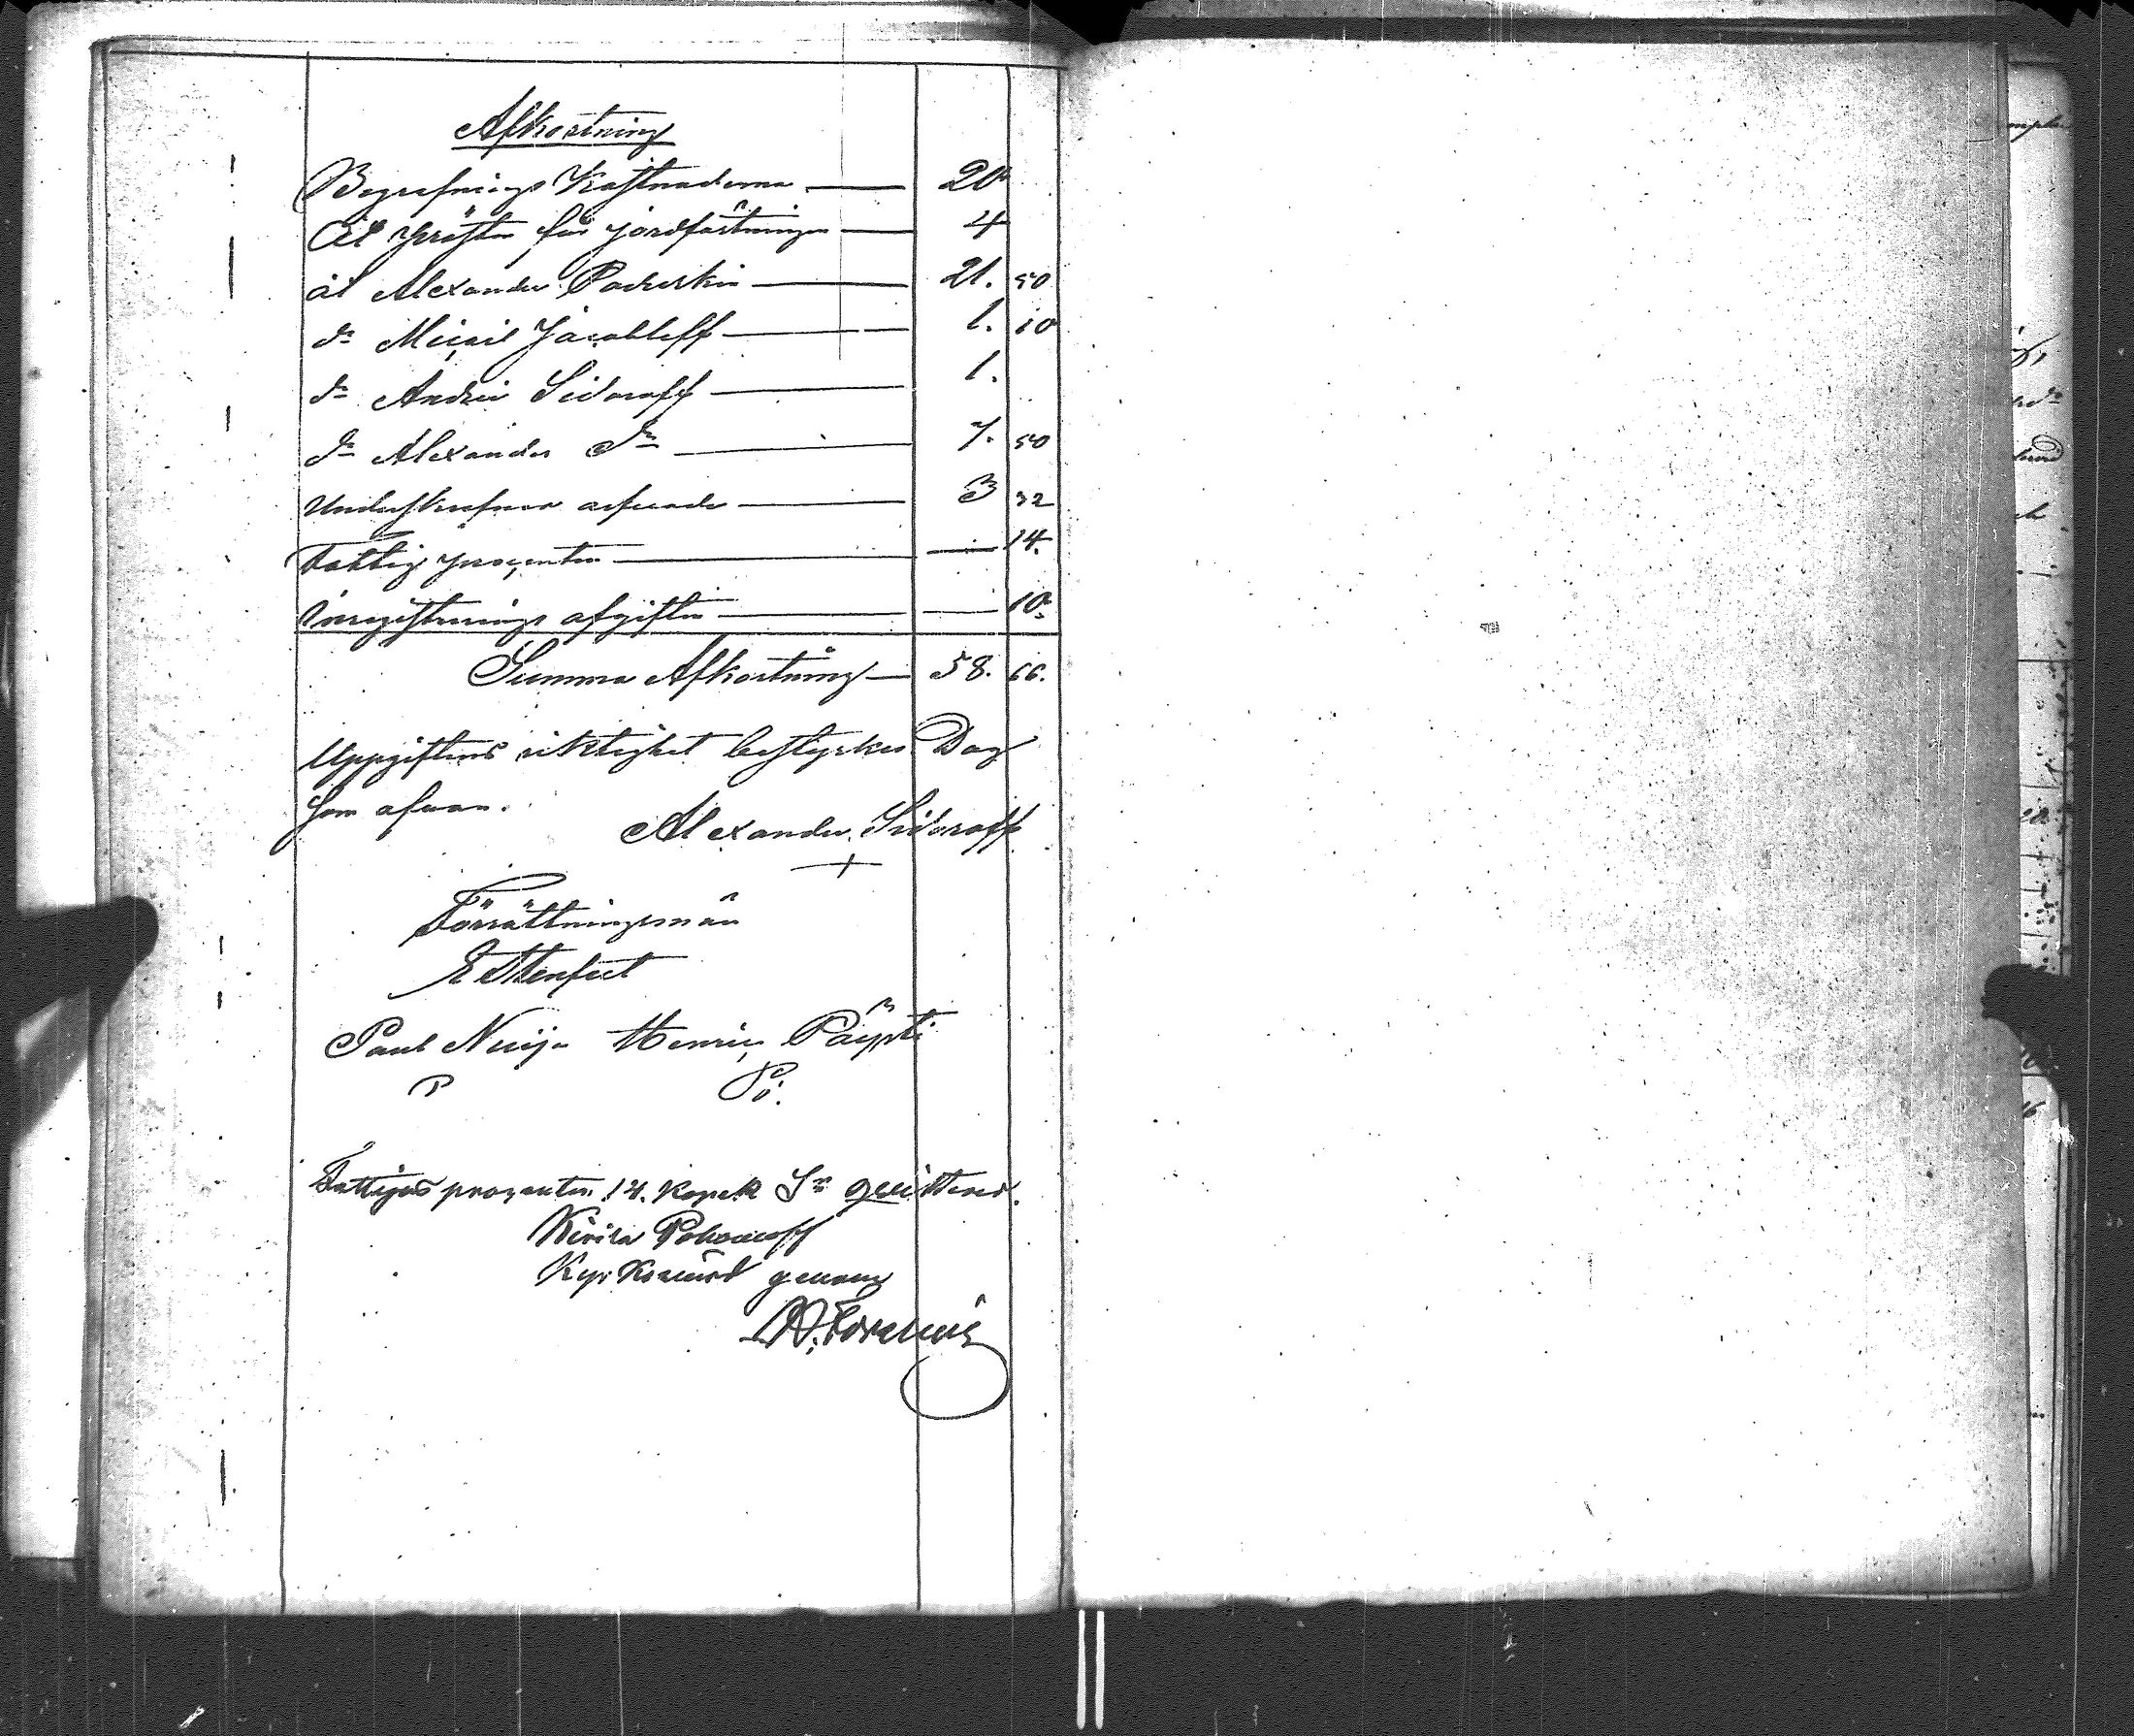 Afkortning
Begrafnings Kostnaderna — 20
Åt Prästen för jordfästningen — 4
åt Alexander Padruskin — 21. 50
do Micail Jacobleff — 1. 10
do Andrei Sidoroff — 1.
do Alexander do — 7. 50
Underskrefnes arfvode — 3 32
Fattig procenten — 14.
Inregistrerings afgiften — 10.
Summa Afkortning — 58. 66.
Uppgiftens riktighet bestyrkes Dag
som ofvan.
Alexander Sidoroff
+
Förrättningsmän
E Stenfeet
Paul Nuija Henric Päiysti
P Pö.
Fattiges procenten 14. Kopek Sr qvitteras.
Kirila Pohomoff
Kyrkovärd genom